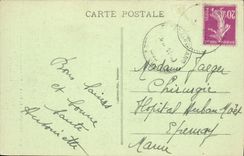 CARTE POSTALE
20c
Bons baisers
et bonne
santé
Madame Jaeger
Chirurgie
Hôpital Auban Moët
Epernay
Marne